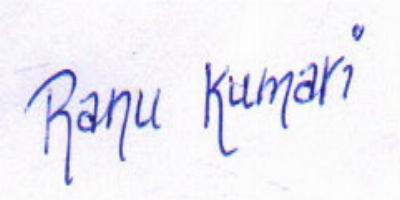 Ranu Kumari